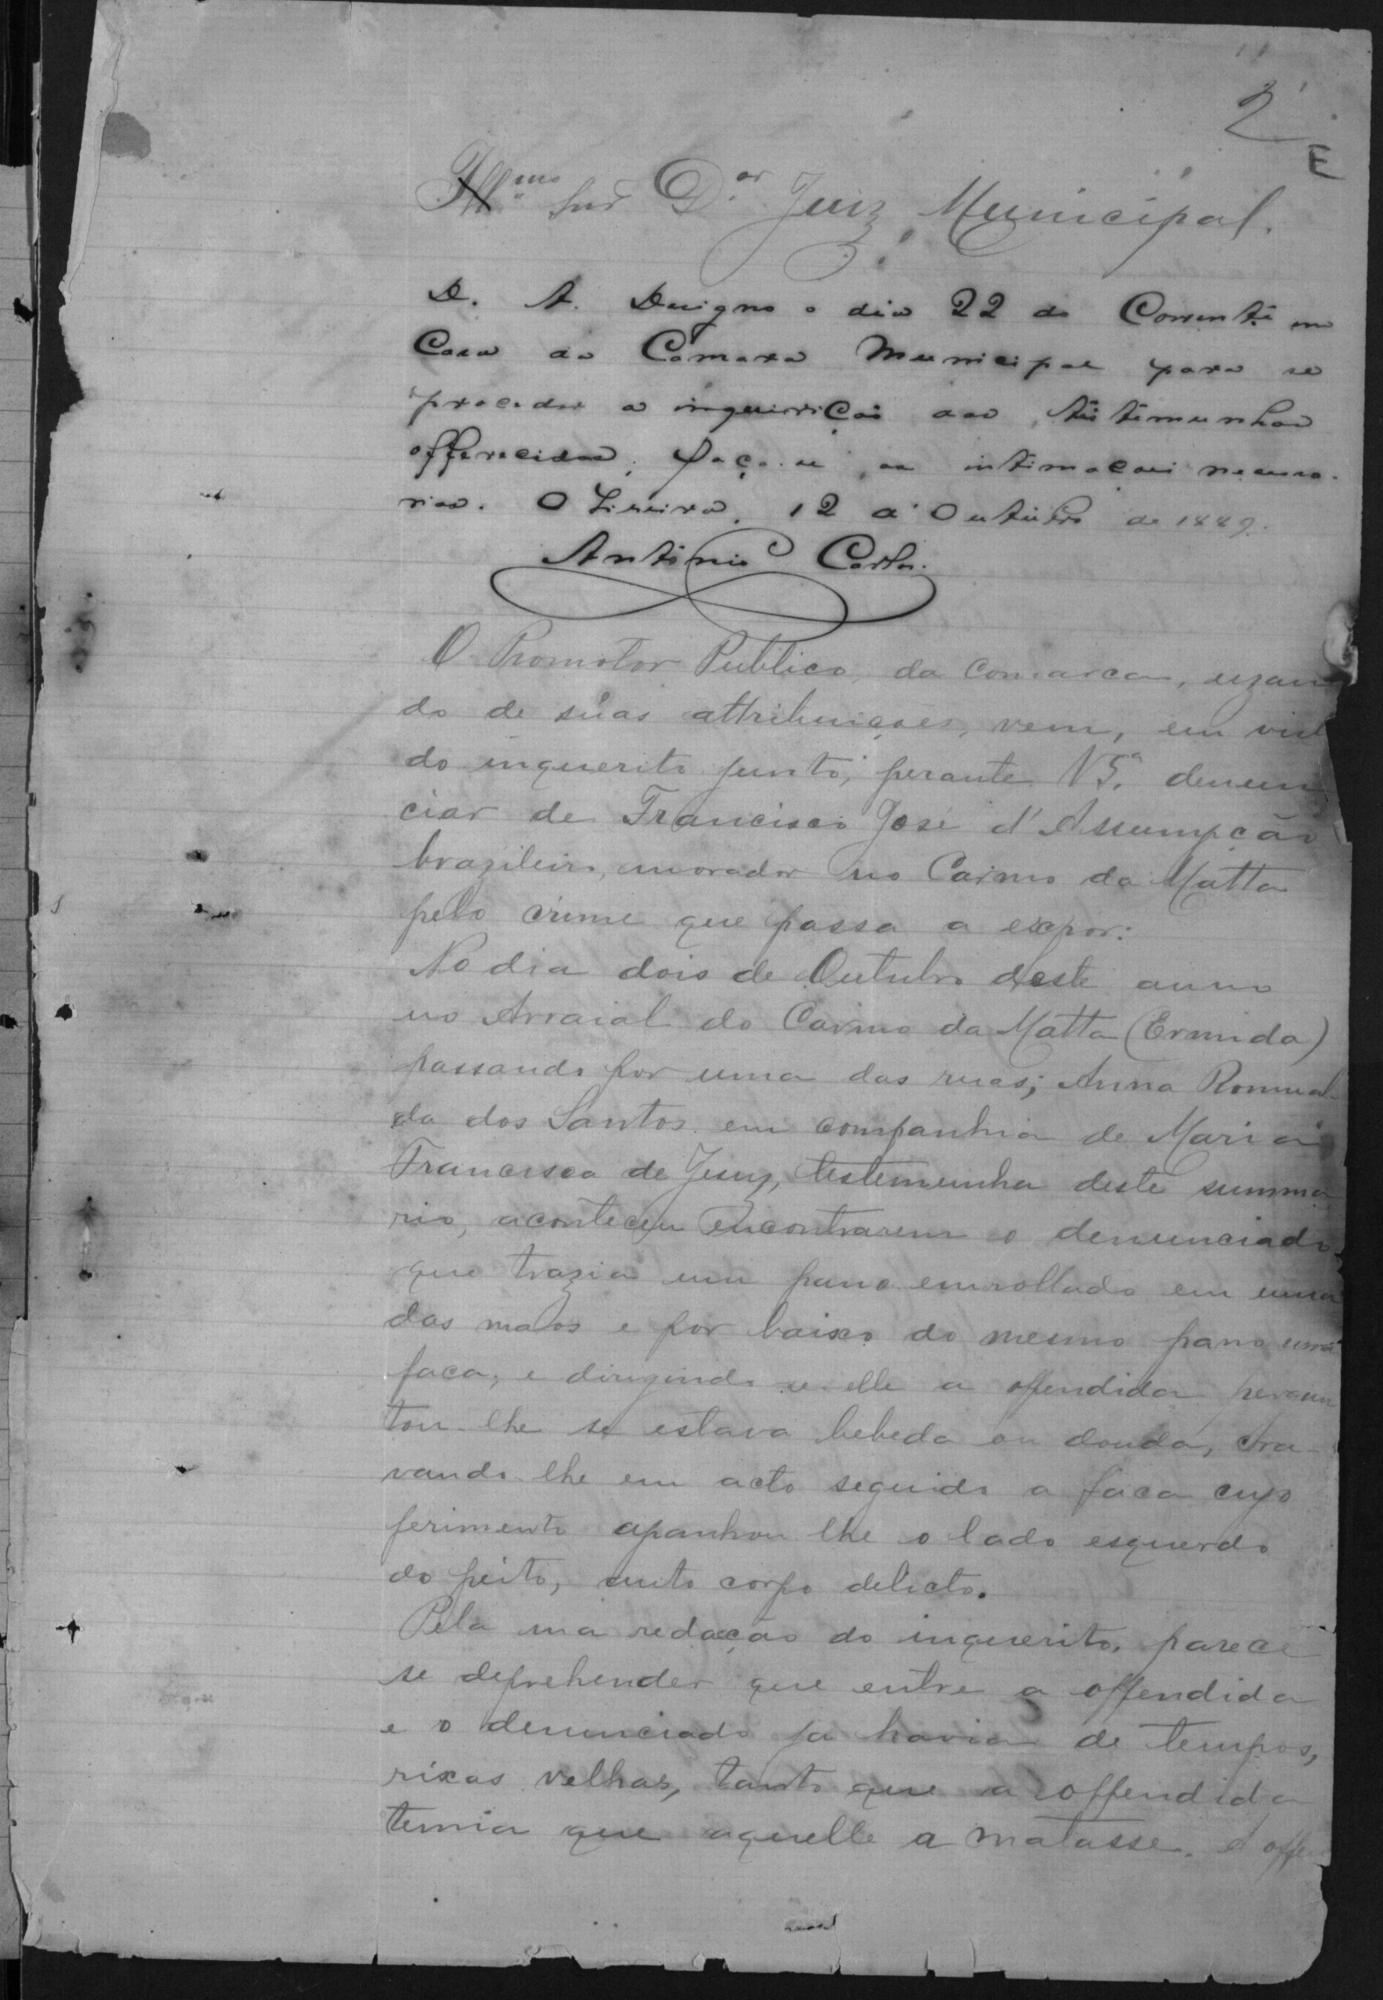 2
E
Ill.mo Snr D.or Juiz Municipal.
D. A. Designo o dia 22 do Corrente na
Casa da Camara Municipal para se
proceder a inquirição das testemunhas
offerecidas, faça-se as intimações necessa-
rias. Oliveira, 12 d'Outubro de 1889.
Antonio Carlos.
O Promotor Publico da Comarca, uzan
do de suas attribuições, vem, em vist
do inquerito junto, perante V S.ª denun
ciar de Francisco José d'Assumpção
brazileiro, morador no Carmo da Matta
pelo crime que passa a expor:
No dia dois de Outubro deste anno
no Arraial do Carmo da Matta (Ermida)
passando por uma das ruas; Anna Romual
da dos Santos em companhia de Maria
Francisca de Jesuz, testemunha deste summa
rio, aconteceu encontrarem o denunciado
que trazia um pano enrollado em uma
das maos e por baixo do mesmo pano uma
faca, e dirigindo se elle a offendida pergun
tou-lhe se estava bebeda ou douda, cra-
vando-lhe em acto seguido a faca cujo
ferimento apanhou lhe o lado esquerdo
do peito, auto corpo delicto.
Pela má redacção do inquerito, parece
se deprehender que entre a offendida
e o denunciado ja havia de tempos,
rixas velhas, tanto que a offendida
temia que aquelle a matasse. A offen